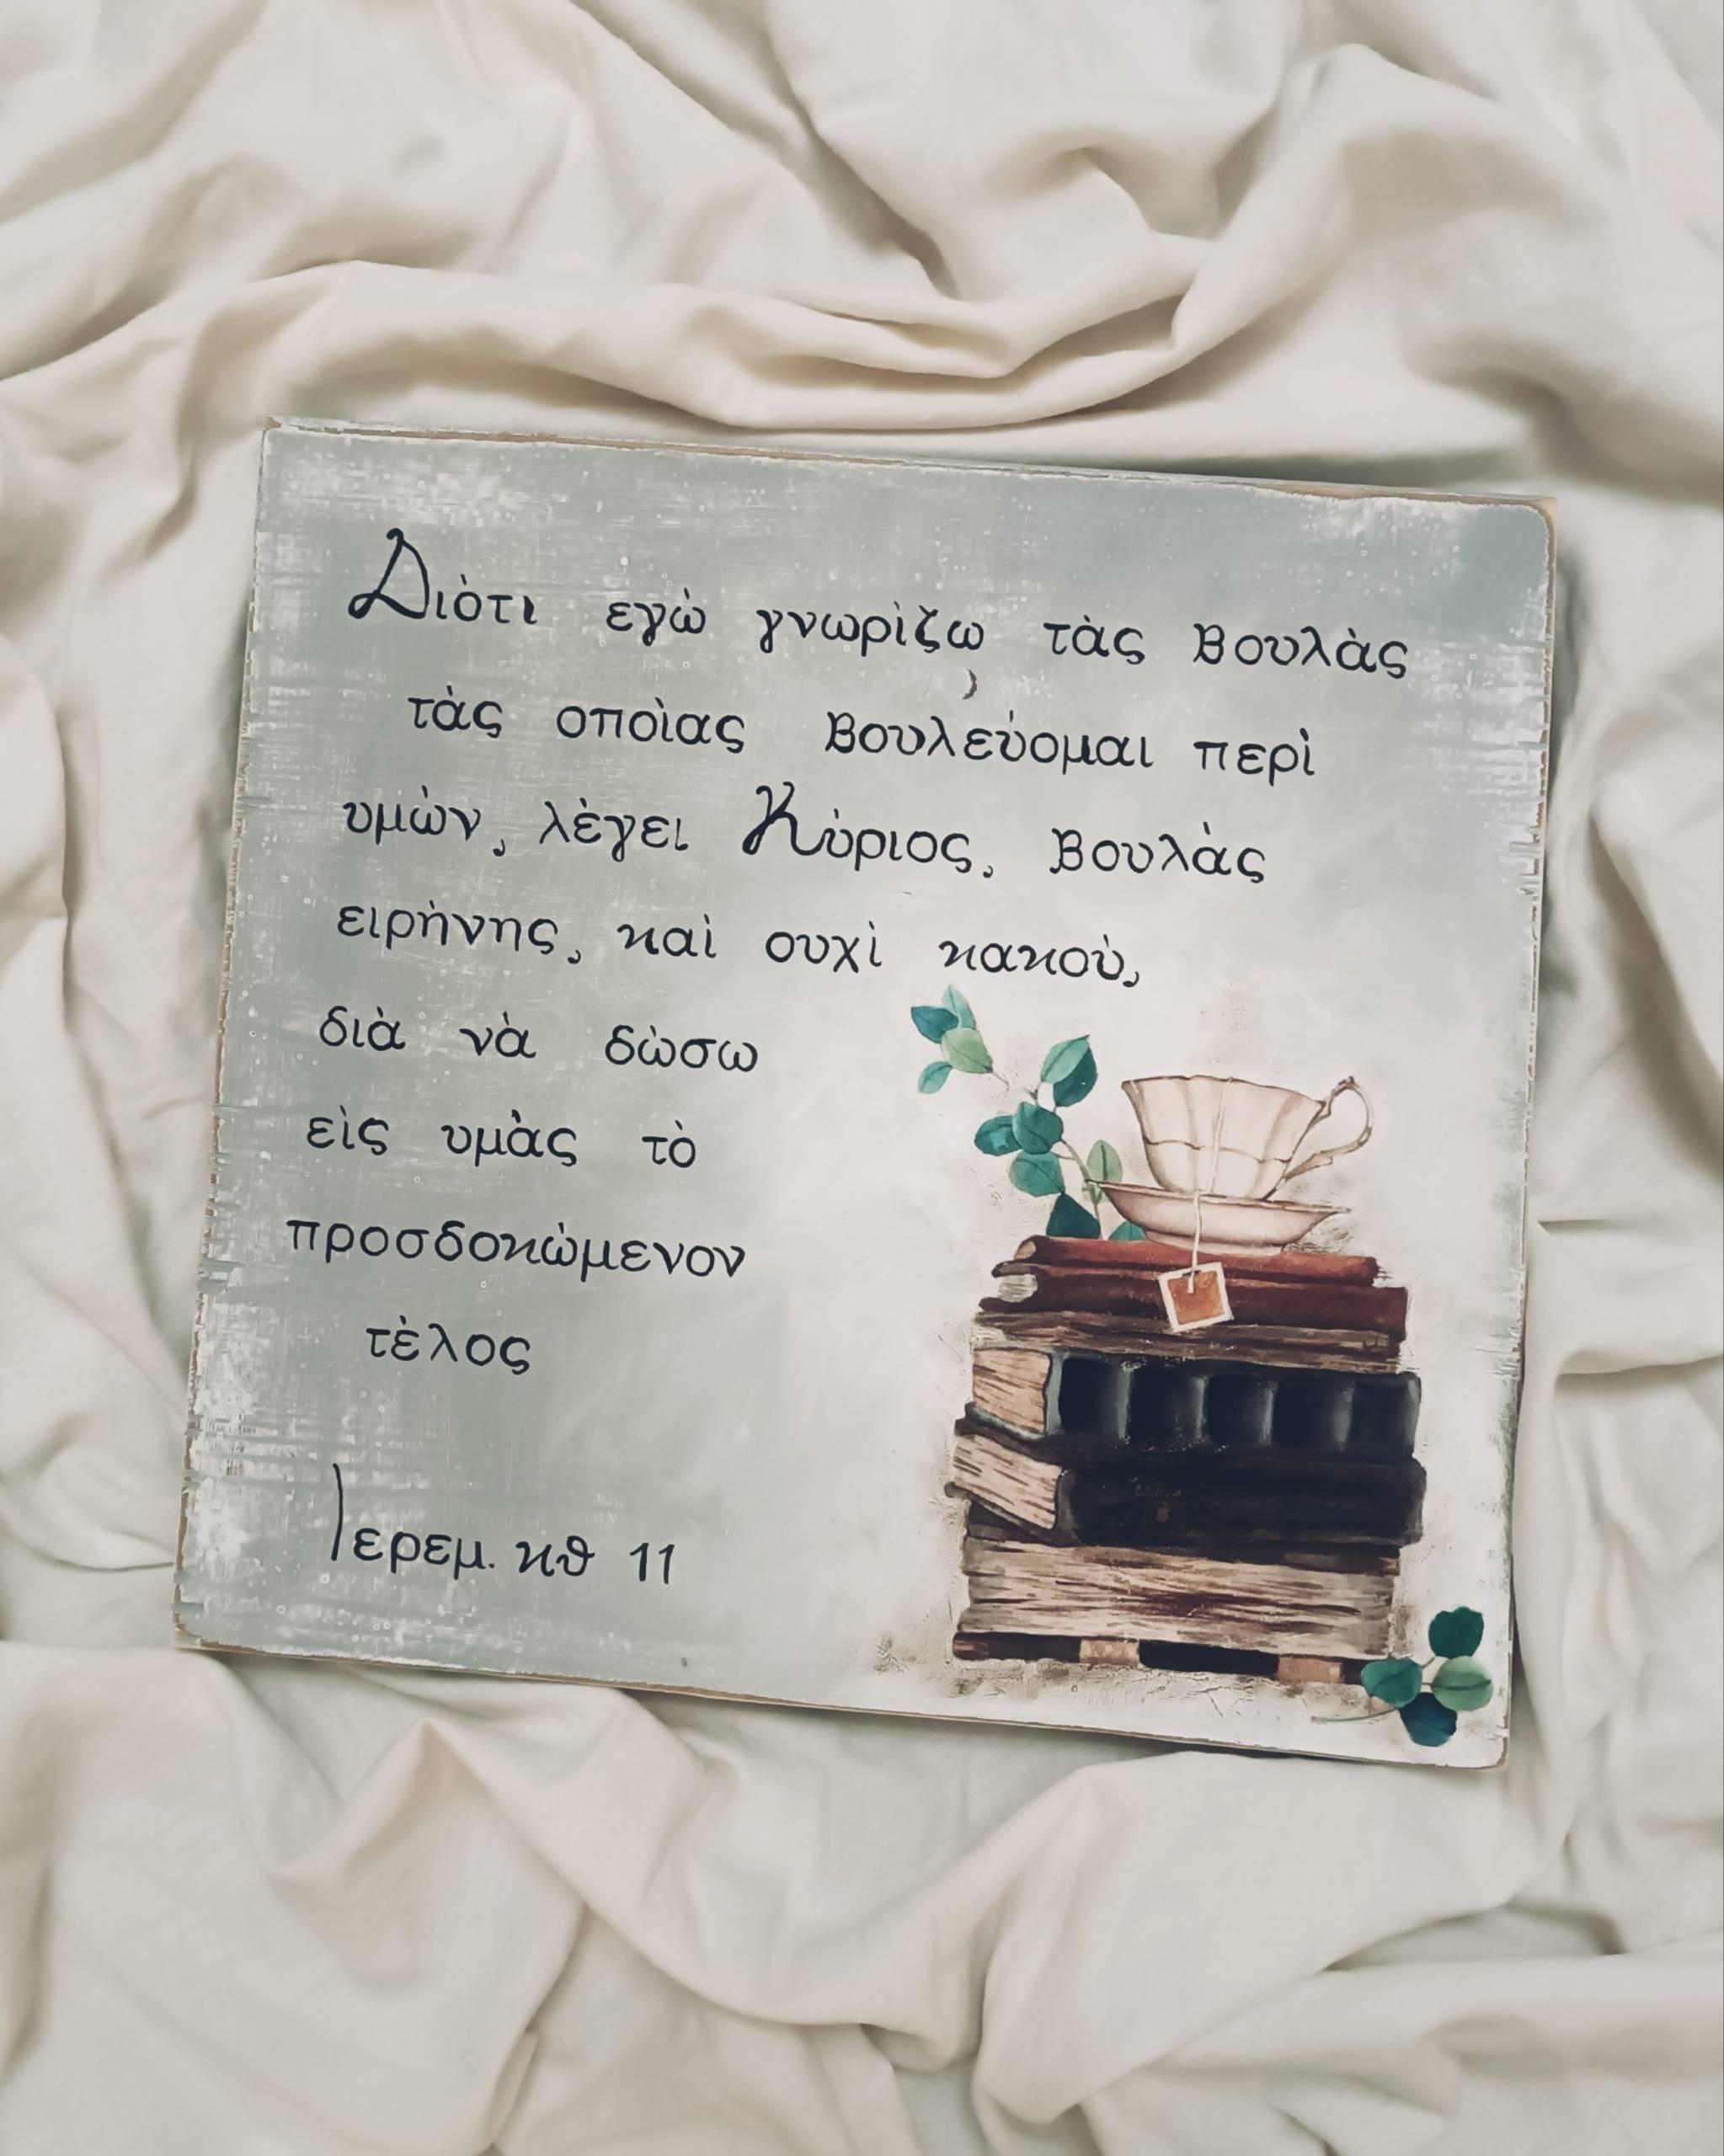 Διὸτι εγὼ γνωρὶζω τὰς Βουλὰς
τὰς οποὶας Βουλεὺομαι περὶ
υμὼν, λὲγει Κὺριος, Βουλὰς
ειρὴνης, καὶ ουχὶ κακοὺ,
διὰ νὰ δὼσω
εὶς υμὰς τὸ
προσδοκὼμενον
τὲλος
Ιερεμ. κθ 11